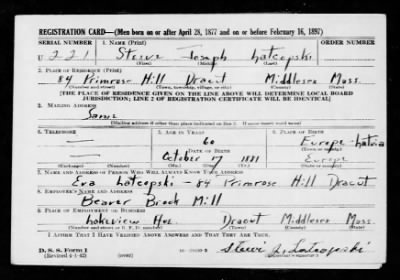 REGISTRATION CARD—(Men born on or after April 28, 1877 and on or before February 16, 1897)
SERIAL NUMBER 1. NAME (Print) ORDER NUMBER
U 221 Joseph Latcopski
(First) (Middle) (Last)
2. PLACE OF RESIDENCE (Print)
84 Primrose Hill Dracut Middlesex Mass.
(Number and street) (Town, township, village, or city) (County) (State)
[THE PLACE OF RESIDENCE GIVEN ON THE LINE ABOVE WILL DETERMINE LOCAL BOARD
JURISDICTION; LINE 2 OF REGISTRATION CERTIFICATE WILL BE IDENTICAL]
3. MAILING ADDRESS
Same
[Mailing address if other than place indicated on line 2. If same insert word same]
4. TELEPHONE 5. AGE IN YEARS 6. PLACE OF BIRTH
— 60 Europe-Latvia
DATE OF BIRTH (Town or county)
October 17 1881 Europe
(Mo.) (Day) (Yr.) (State or country)
7. NAME AND ADDRESS OF PERSON WHO WILL ALWAYS KNOW YOUR ADDRESS
Eva Latcopski - 84 Primrose Hill Dracut
8. EMPLOYER'S NAME AND ADDRESS
Beaver Brook Mill
9. PLACE OF EMPLOYMENT OR BUSINESS
Lakeview Ave. Dracut Middlesex Mass.
(Number and street or R. F. D. number) (Town) (County) (State)
I AFFIRM THAT I HAVE VERIFIED ABOVE ANSWERS AND THAT THEY ARE TRUE.
D. S. S. Form 1
(Revised 4-1-42)